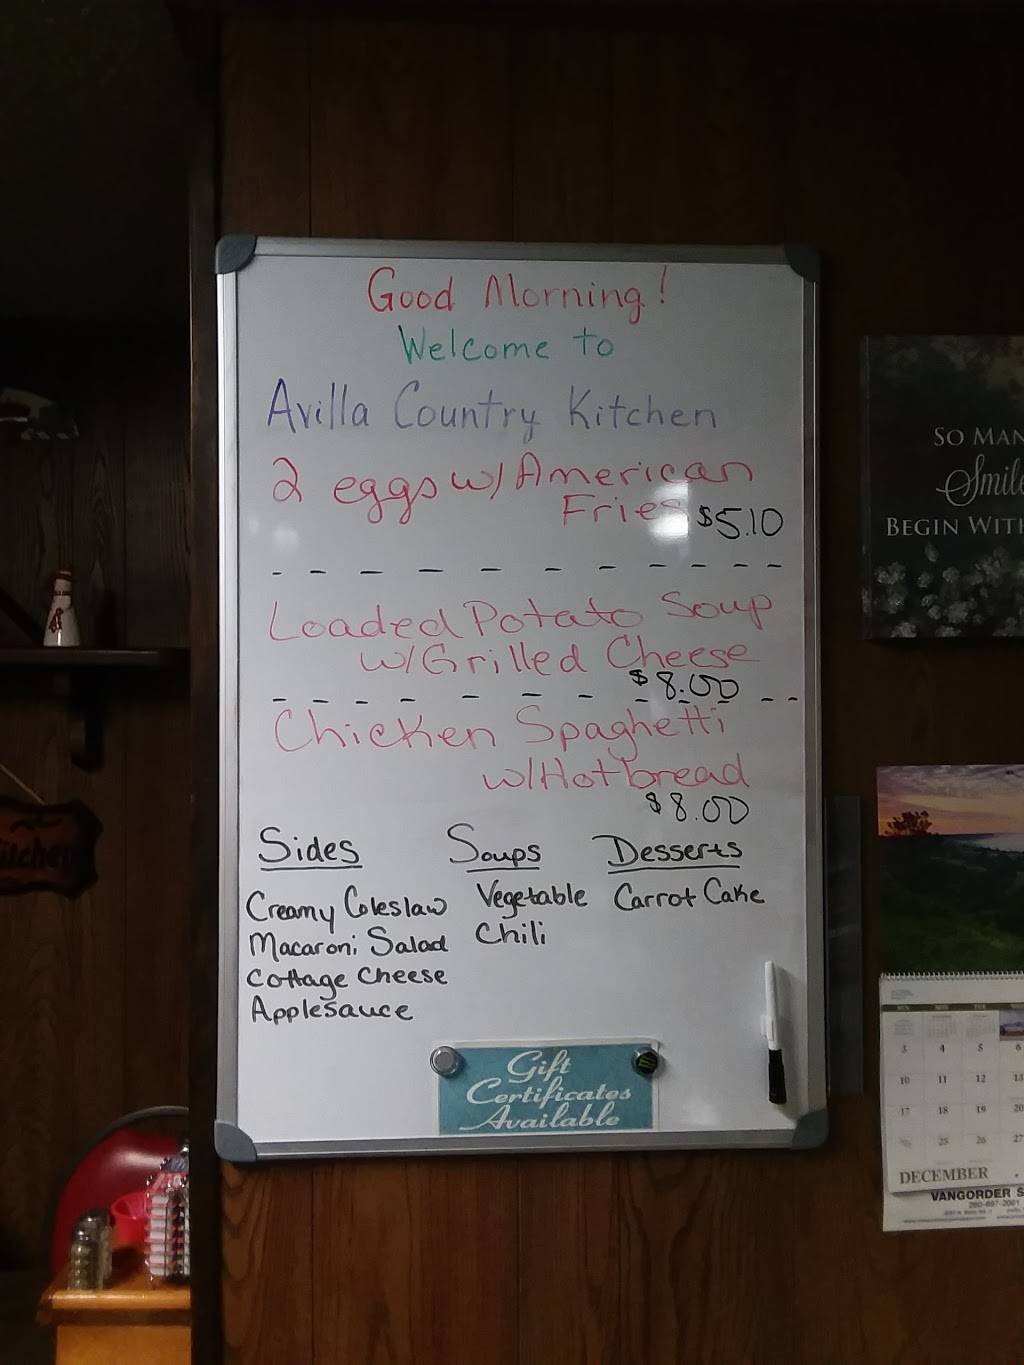 Good Morning!
Welcome to
Avilla Country Kitchen
2 eggs w/ American
Fries $5.10
Loaded Potato Soup
w/Grilled Cheese
$8.00
Chicken Spaghetti
w/Hot bread
$8.00
Sides Soups Desserts
Creamy Coleslaw Vegetable Carrot Cake
Macaroni Salad Chili
Cottage Cheese
Applesauce
Gift
Certificates
Available
SO MAN
Smile
BEGIN WITH
3 4 5 6
10 11 12 13
17 18 19 20
25 26 27
DECEMBER
VANGORDER S
260-897-2001